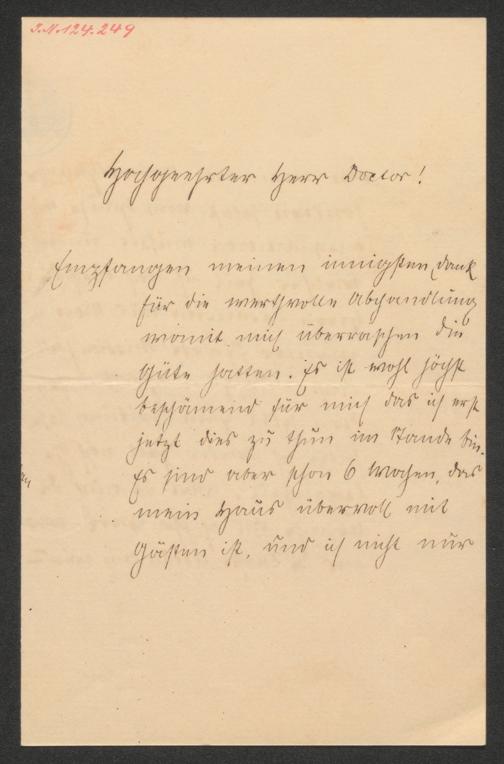 J.N. 124.249
Hochgeehrter Herr Doctor!
Empfangen meinen innigsten Dank
für die werthvolle Abhandlung
womit mich überraschen die
Güte hatten. Es ist wohl höchst
beschämend für mich das ich erst
jetzt dies zu thun im Stande bin.
Es sind aber schon 6 Wochen, das
mein Haus übervoll mit
Gästen ist, und ich nicht nur